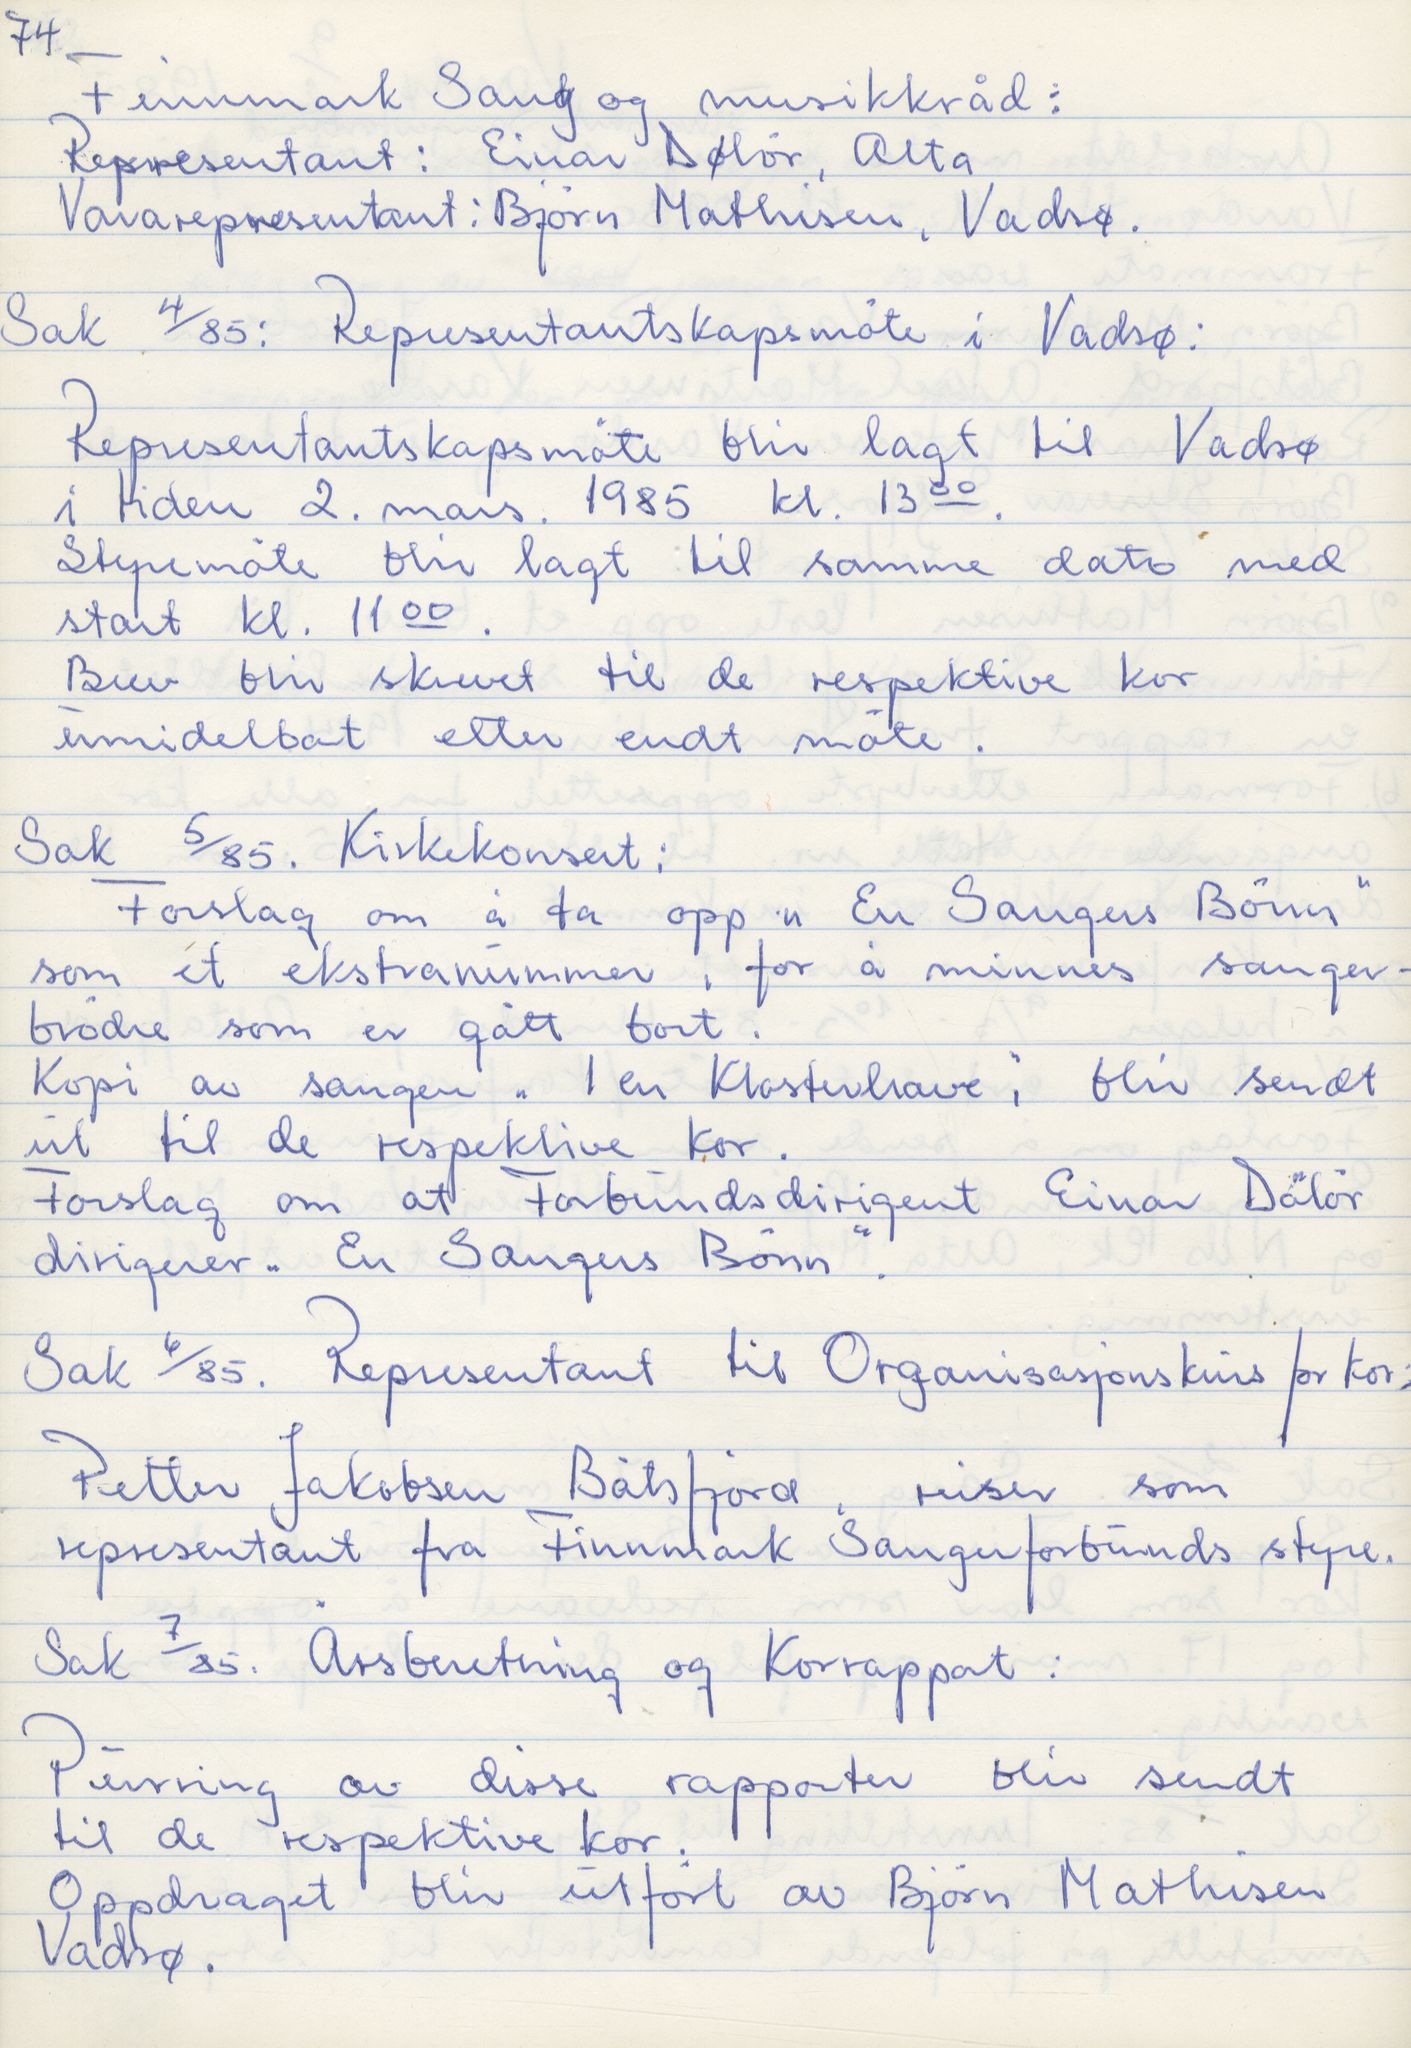 74
Finnmark Sang og musikkråd:
Representant: Einar Dølör, Alta
Vararepresentant: Björn Mathisen, Vadsø.
Sak 4/85: Representantskapsmöte i Vadsø:
Representantskapsmöte blir lagt til Vadsø
i tiden 2. mars. 1985 kl. 13 00.
Styremöte blir lagt til samme dato med
start kl. 11 00.
Brev blir skrevet til de respektive kor
umidelbat etter endt möte.
Sak 5/85. Kirkekonsert:
Forslag om å ta opp „ En Sangers Bönn"
som et ekstranummer, for å minnes sanger-
brödre som er gått bort.
Kopi av sangen „ I en Klosterhave", blir sendt
ut til de respektive kor.
Forslag om at Forbundsdirigent Einar Dålör
dirigerer „ En Sangers Bönn".
Sak 6/85. Representant til Organisasjonskurs for kor:
Petter Jakobsen Båtsfjord, reiser som
representant fra Finnmark Sangerforbunds styre.
Sak 7/85. Årsberetning og Korrapport:
Purring av disse rapporter blir sendt
til de respektive kor.
Oppdraget blir utfört av Björn Mathisen
Vadsø.